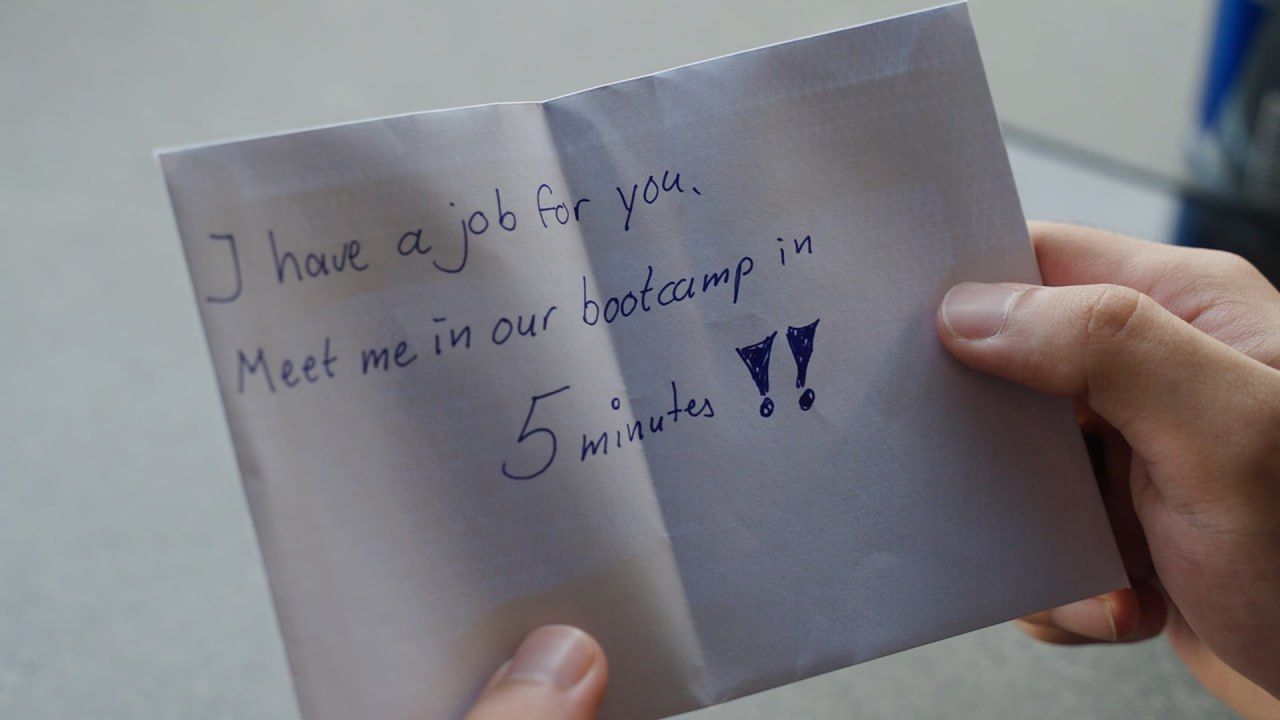 I have a job for you.
Meet me in our bootcamp in
5 minutes !!